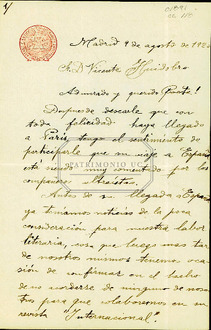 1/
Madrid 9 de agosto de 1920
Sr. D. Vicente Huidobro
Admirado y querido Poeta!
Despues de desearle que con
toda felicidad haya llegado
a Paris tengo el sentimiento de
participarle que su viaje a España
está siendo muy comentado por los
compañeros ultraistas.
PATRIMONIO UC
Antes de su llegada a España
ya teniamos noticias de la poca
consideración para nuestra labor
literaria, cosa que luego mas tar
de nosotros mismos tuvimos oca
sión de confirmar en el hecho
de no acordarse de ninguno de noso
tros para que colaborasemos en su
revista "Internacional".